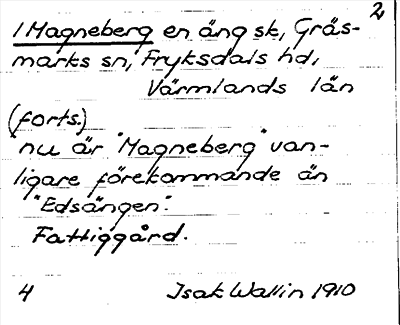 2
1 Magneberg en äng sk, Gräs-
marks sn, Fryksdals hd,
Värmlands län
(forts.)
nu är "Magneberg" van-
ligare förekommande än
"Edsängen".
Fattiggård.
4 Isak Wallin 1910